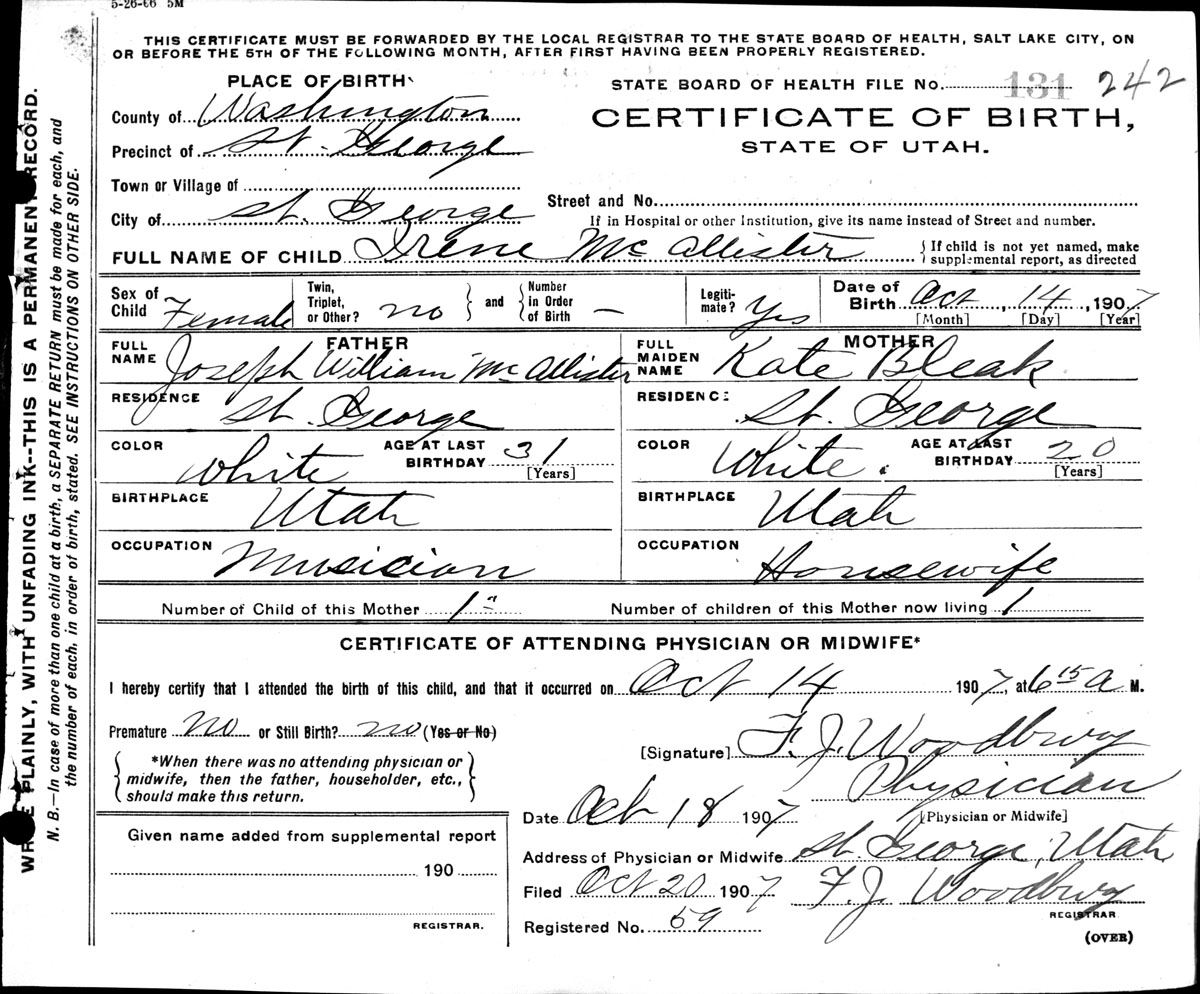 5-26-06 5M
THIS CERTIFICATE MUST BE FORWARDED BY THE LOCAL REGISTRAR TO THE STATE BOARD OF HEALTH, SALT LAKE CITY, ON
OR BEFORE THE 5TH OF THE FOLLOWING MONTH, AFTER FIRST HAVING BEEN PROPERLY REGISTERED.
PLACE OF BIRTH
STATE BOARD OF HEALTH FILE No. 131 242
County of Washington
CERTIFICATE OF BIRTH,
Precinct of St. George
STATE OF UTAH.
Town or Village of
Street and No.
City of St. George
If in Hospital or other Institution, give its name instead of Street and number.
FULL NAME OF CHILD Irene McAllister
{If child is not yet named, make
supplemental report, as directed
Sex of Child Female
Twin, Triplet, or Other? no } and { Number in Order of Birth –
Legiti-mate? Yes
Date of Birth Oct, 14, 1907
[Month] [Day] [Year]
FATHER
FULL NAME Joseph William McAllister
RESIDENCE St. George
COLOR White
AGE AT LAST BIRTHDAY 31
[Years]
BIRTHPLACE Utah
OCCUPATION Musician
MOTHER
FULL MAIDEN NAME Kate Bleak
RESIDENCE St. George
COLOR White.
AGE AT LAST BIRTHDAY 20
[Years]
BIRTHPLACE Utah
OCCUPATION Housewife
Number of Child of this Mother 1
Number of children of this Mother now living 1
CERTIFICATE OF ATTENDING PHYSICIAN OR MIDWIFE*
I hereby certify that I attended the birth of this child, and that it occurred on Oct 14 1907, at 6 15 a M.
Premature no or Still Birth? no (Yes or No)
[Signature] F. J. Woodbury
Physician
[Physician or Midwife]
{ *When there was no attending physician or
midwife, then the father, householder, etc.,
should make this return. }
Date Oct 18 1907
Address of Physician or Midwife St. George, Utah
Given name added from supplemental report
190
REGISTRAR.
Filed Oct 20 1907 F. J. Woodbury
REGISTRAR
Registered No. 59
(OVER)
WRITE PLAINLY, WITH UNFADING INK--THIS IS A PERMANENT RECORD.
N. B.—In case of more than one child at a birth, a SEPARATE RETURN must be made for each, and
the number of each, in order of birth, stated. SEE INSTRUCTIONS ON OTHER SIDE.